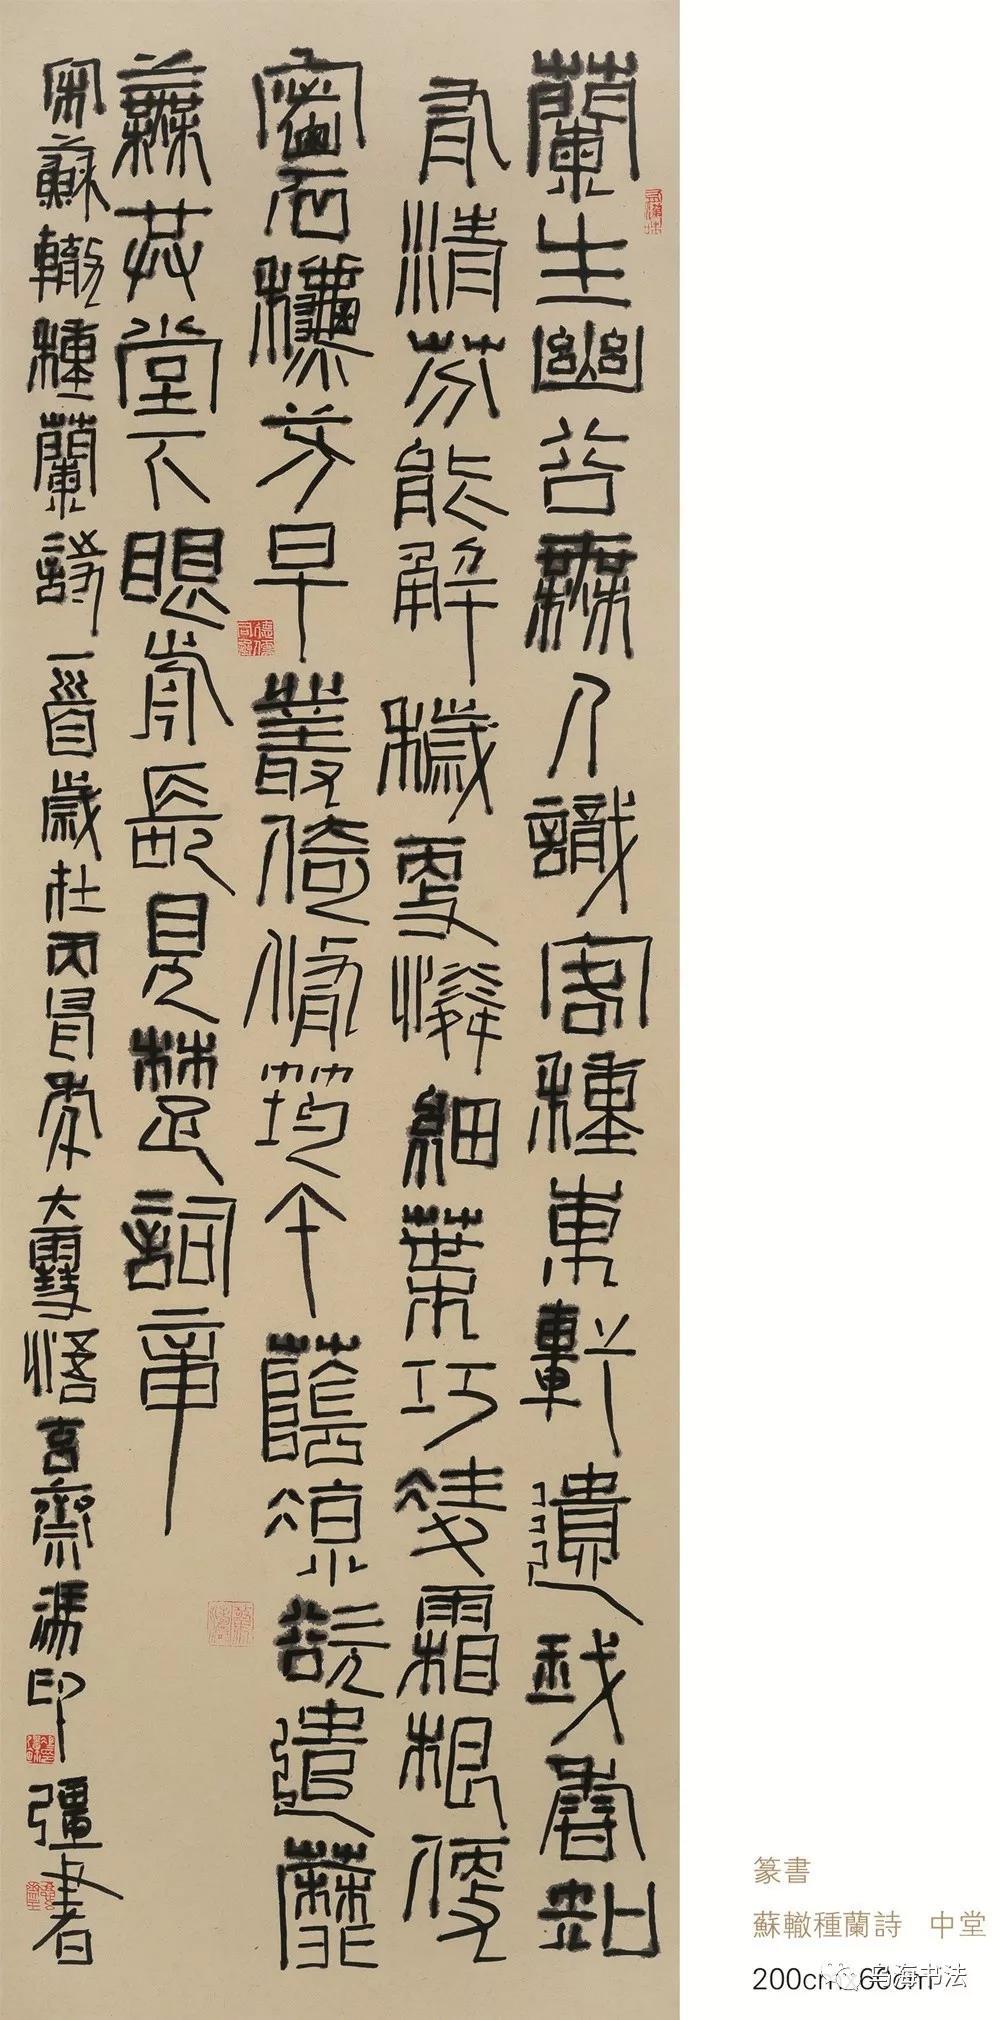 蘭生幽谷無人識客種東軒遺我香知
有清芬能解穢更憐細葉巧凌霜根便
密石穐芳早叢倚脩筠午蔭涼欲遣蘼
蕪共堂下眼前長見楚詞章
宋蘇轍種蘭詩一首歲在丙申秊大雪悟齋馮印彊書
篆書
蘇轍種蘭詩 中堂
200cm 60cm
乌海书法